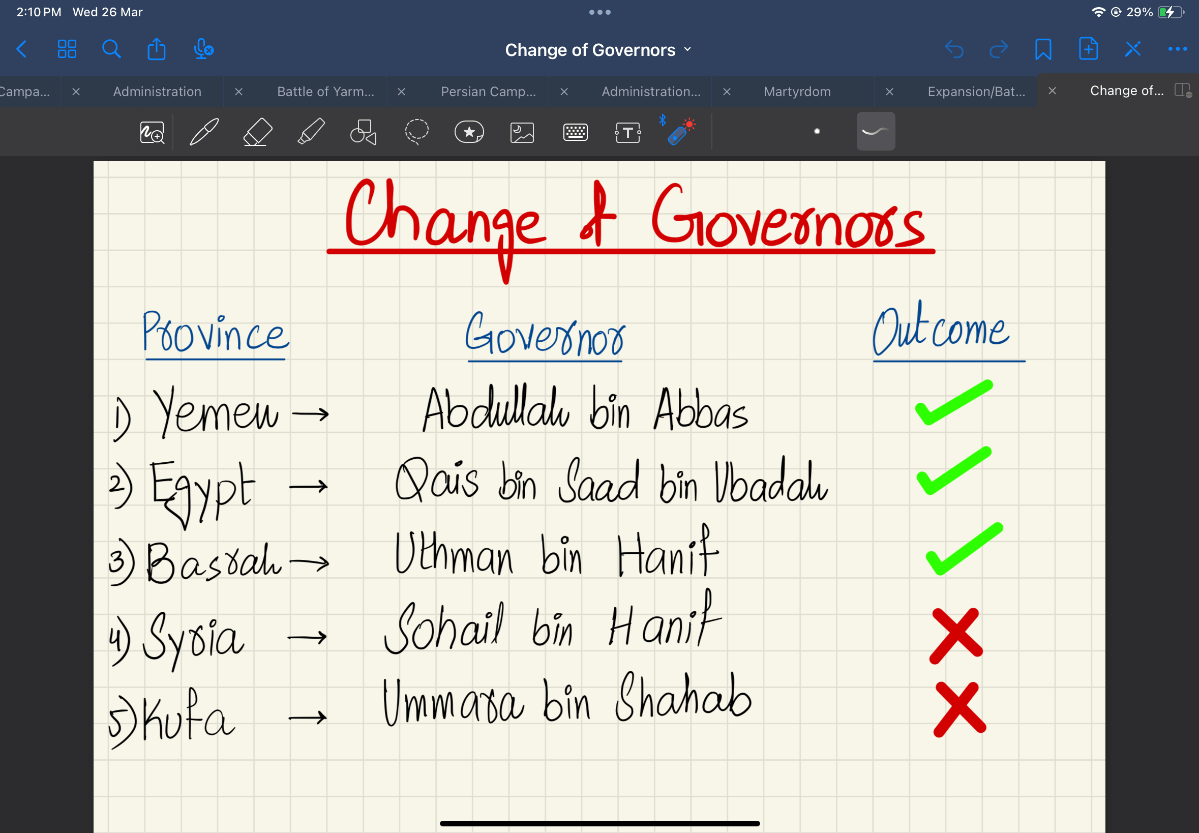 2:10 PM Wed 26 Mar
29%
Change of Governors
Campa... Administration Battle of Yarm... Persian Camp... Administration... Martyrdom Expansion/Bat... Change of...
T
Change of Governors
Province Governor Outcome
1) Yemen → Abdullah bin Abbas ✓
2) Egypt → Qais bin Saad bin Ubadah ✓
3) Basrah → Uthman bin Hanif ✓
4) Syria → Sohail bin Hanif ✗
5) Kufa → Ummara bin Shahab ✗